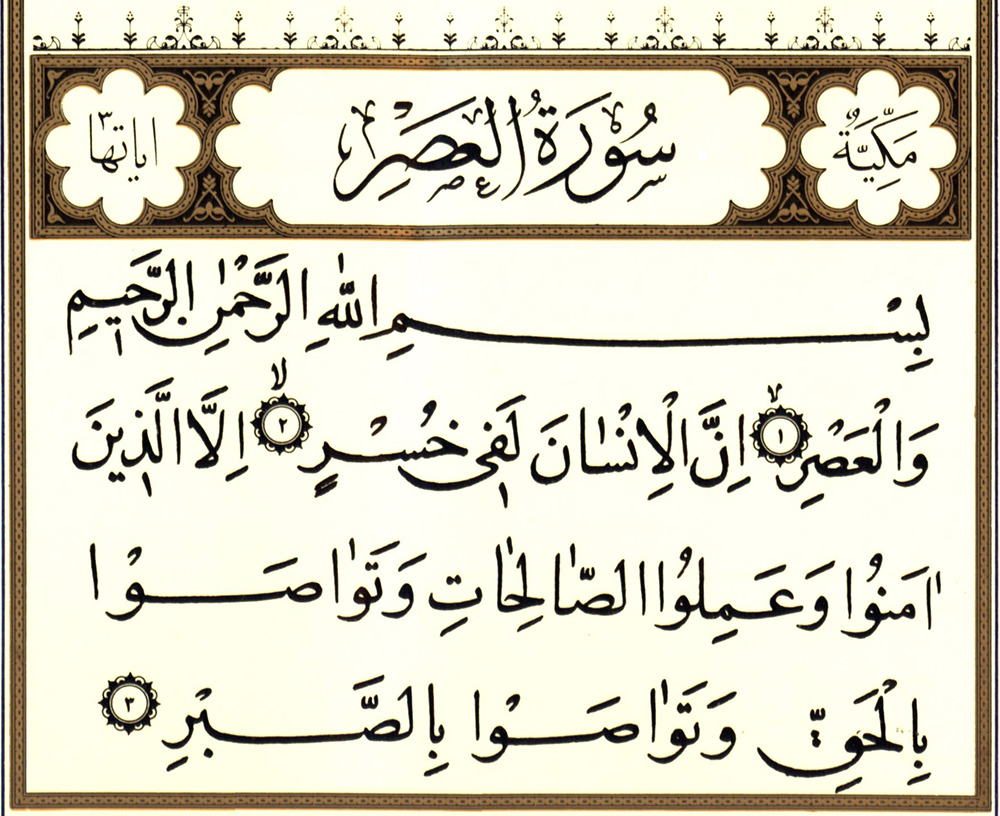 مَكِّيَّةٌ
سُوْرَةُ الْعَصْرِ
اياتها ٣
بِسْمِ اللّٰهِ الرَّحْمٰنِ الرَّحِيمِ
وَالْعَصْرِ ۝١ اِنَّ الْاِنْسَانَ لَفٖى خُسْرٍ ۝٢ اِلَّا الَّذٖينَ
اٰمَنُوا وَعَمِلُوا الصَّالِحَاتِ وَتَوَاصَوْا
بِالْحَقِّ وَتَوَاصَوْا بِالصَّبْرِ ۝٣